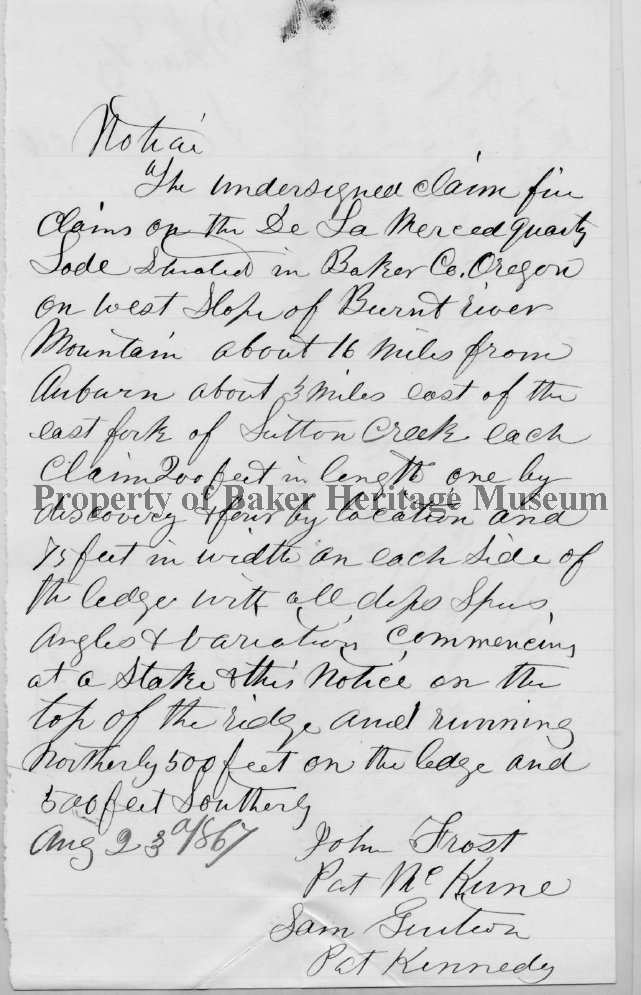 Notice
The undersigned claim five
Claims on the De La Merced quartz
Lode Situated in Baker Co. Oregon
on west Slope of Burnt river
Mountain about 16 miles from
Auburn about 3 miles east of the
east fork of Sutton Creek each
Claim 200 feet in length one by
Property of Baker Heritage Museum
discovery & four by location and
75 feet in width on each Side of
the ledge with all dips Spurs
Angles & Variation Commencing
at a Stake & this Notice on the
top of the ridge and running
Northerly 500 feet on the ledge and
500 feet Southerly
Aug 23d 1867
John Frost
Pat McKune
Sam
Pat Kennedy